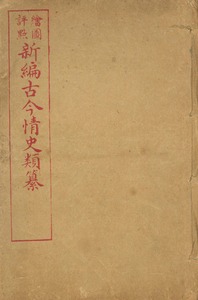 繪圖
評點
新編古今情史類纂